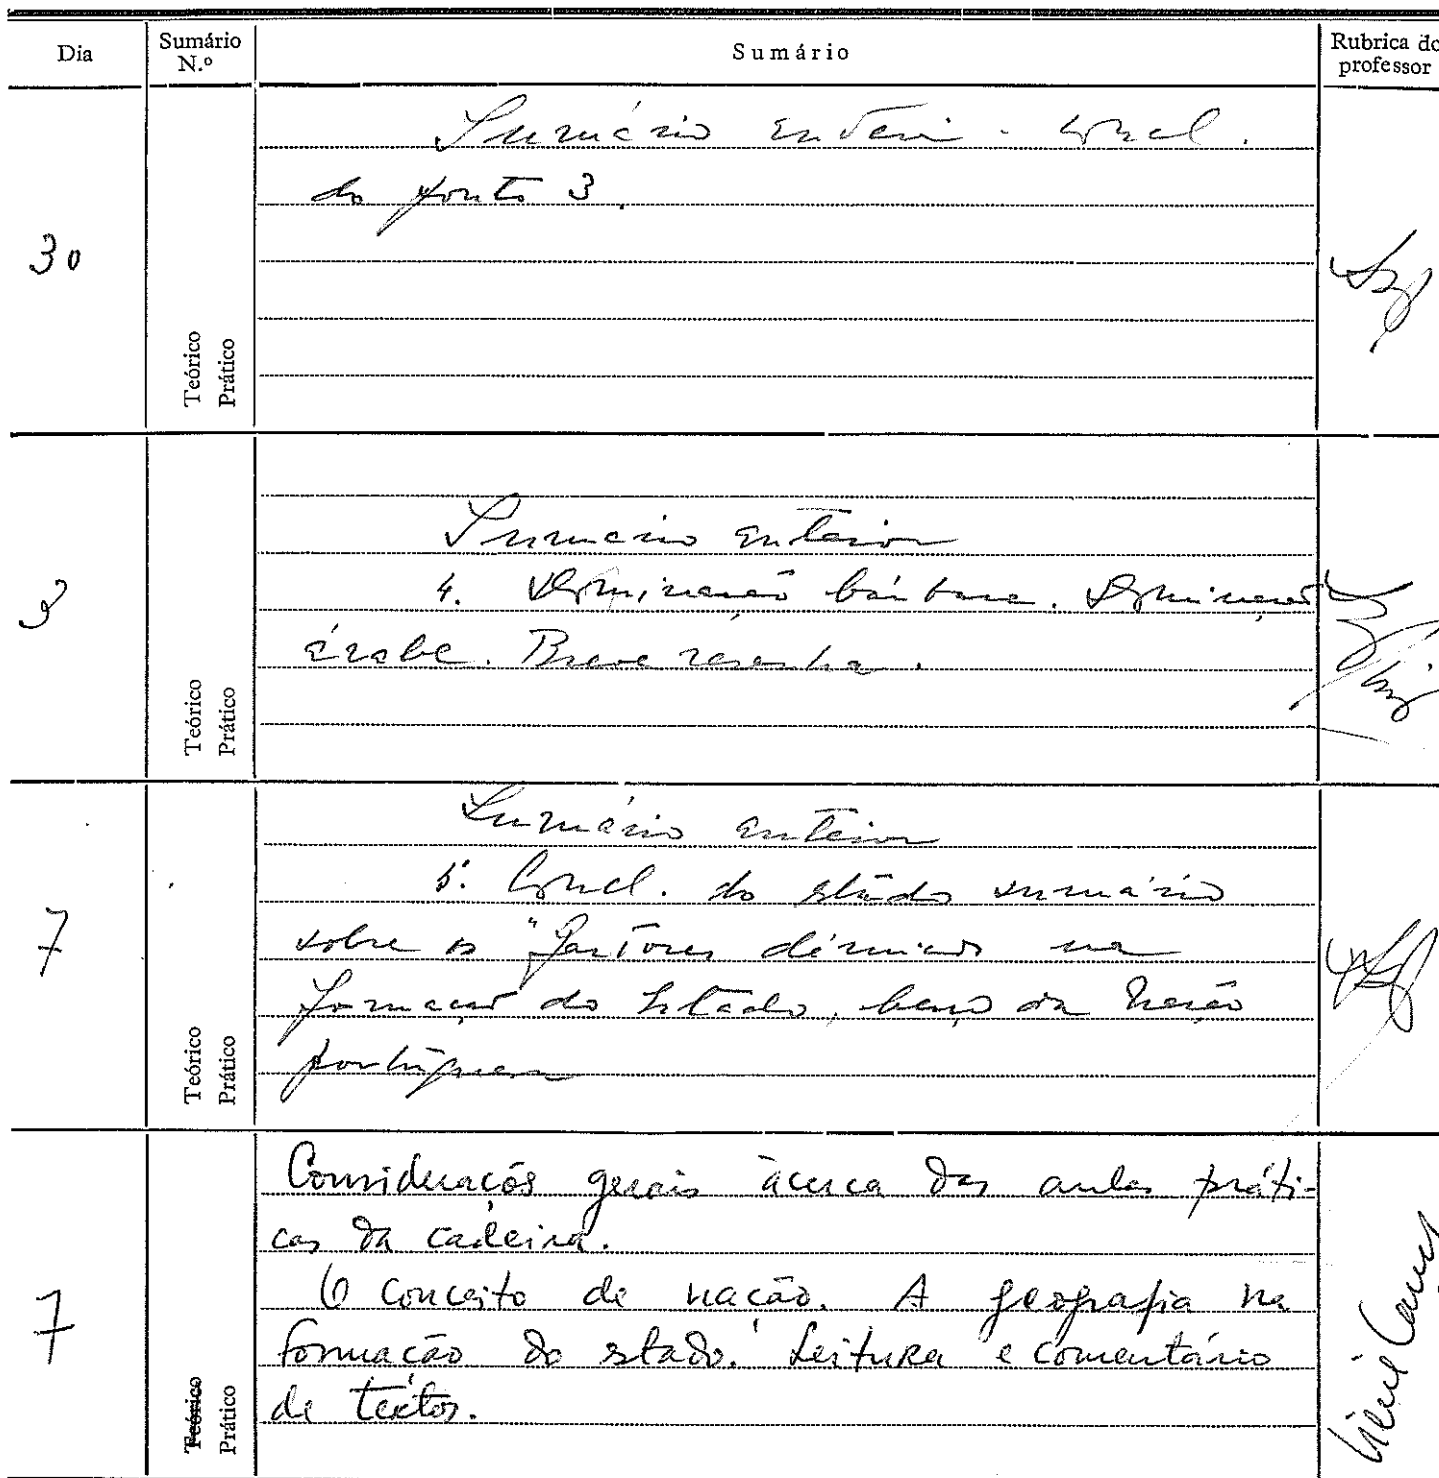 Dia
Sumário
N.º
Sumário
Rubrica do
professor
30
Teórico
Prático
Sumário anterior - Concl.
do ponto 3.
3
Teórico
Prático
Sumário anterior
4. Dominação bárbara. Dominação
árabe. Breve resenha.
7
Teórico
Prático
Sumário anterior
5. Concl. do estudo sumário
sobre os "factores démicos na
formação do Estado, berço da Nação
portuguesa
7
Teórico
Prático
Considerações gerais àcerca das aulas práti-
cas da cadeira.
O conceito de nação. A geografia na
formação do estado. Leitura e comentário
de textos.